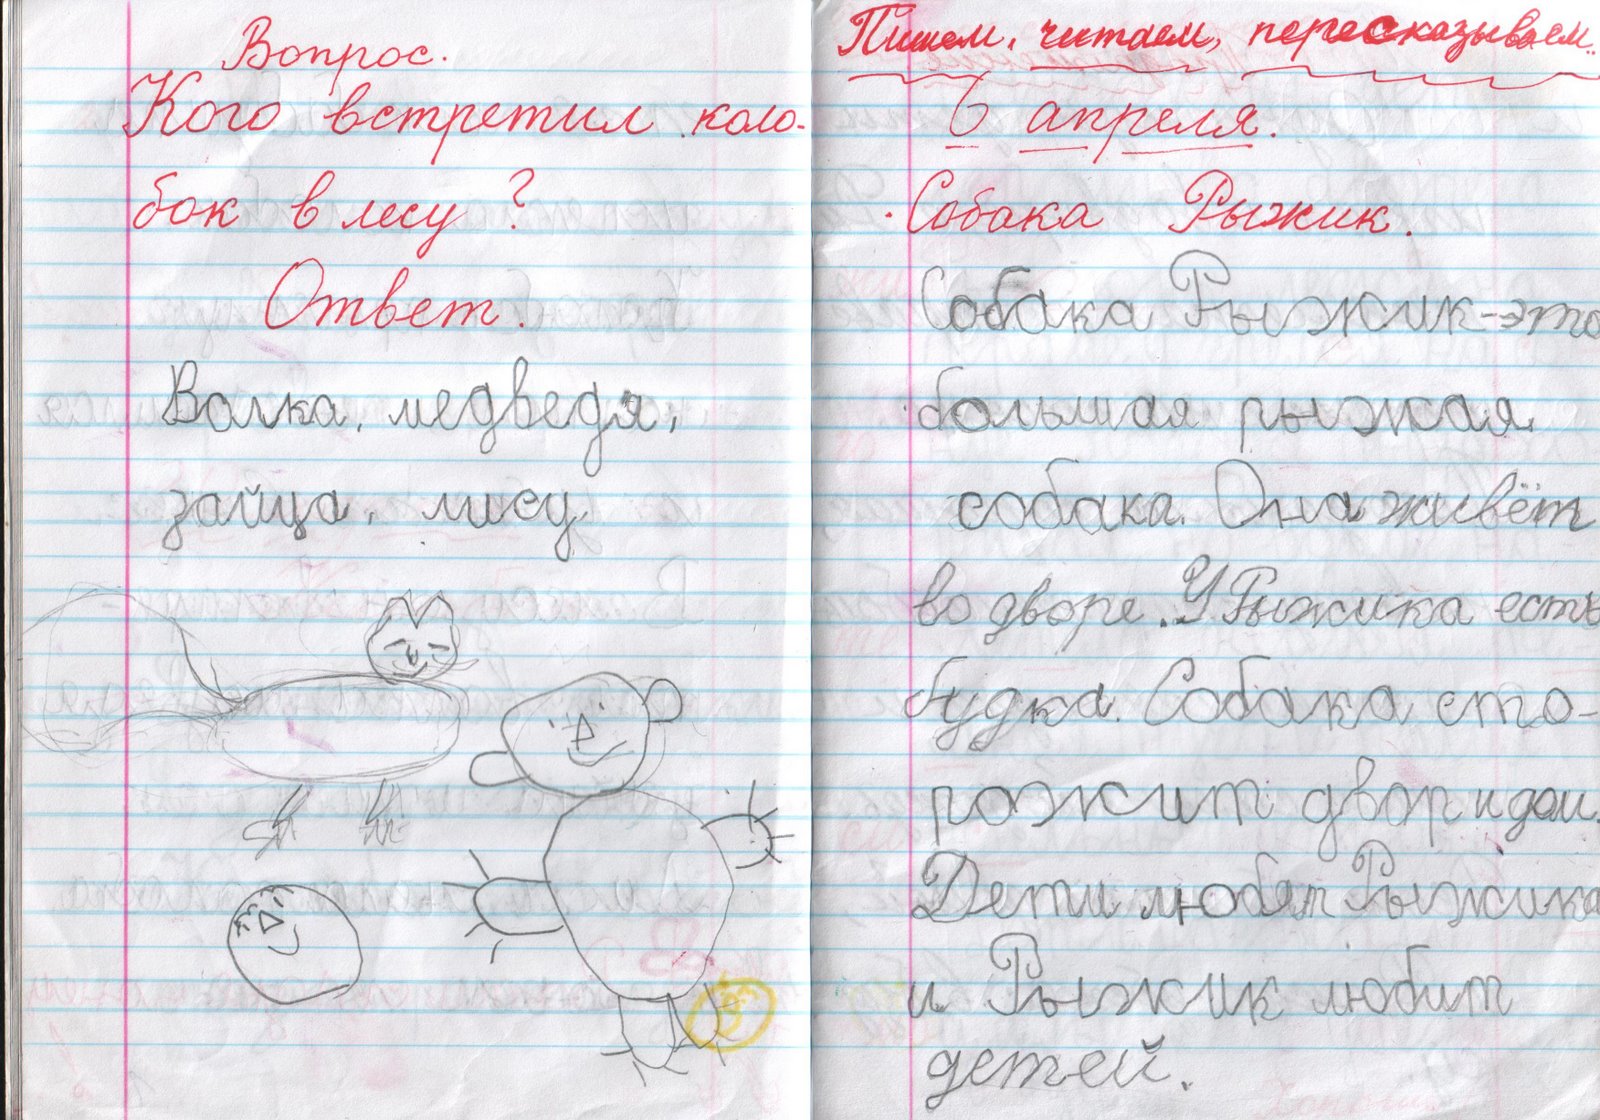 Вопрос.
Кого встретил коло-
бок в лесу?
Ответ.
Волка, медведя,
зайца, лису.
Пишем, читаем, пересказываем.
6 апреля.
Собака Рыжик.
Собака Рыжик-это
большая рыжая
собака. Она живёт
во дворе. У Рыжика есть
будка. Собака сто-
рожит двор и дом.
Дети любят Рыжика
и Рыжик любит
детей.